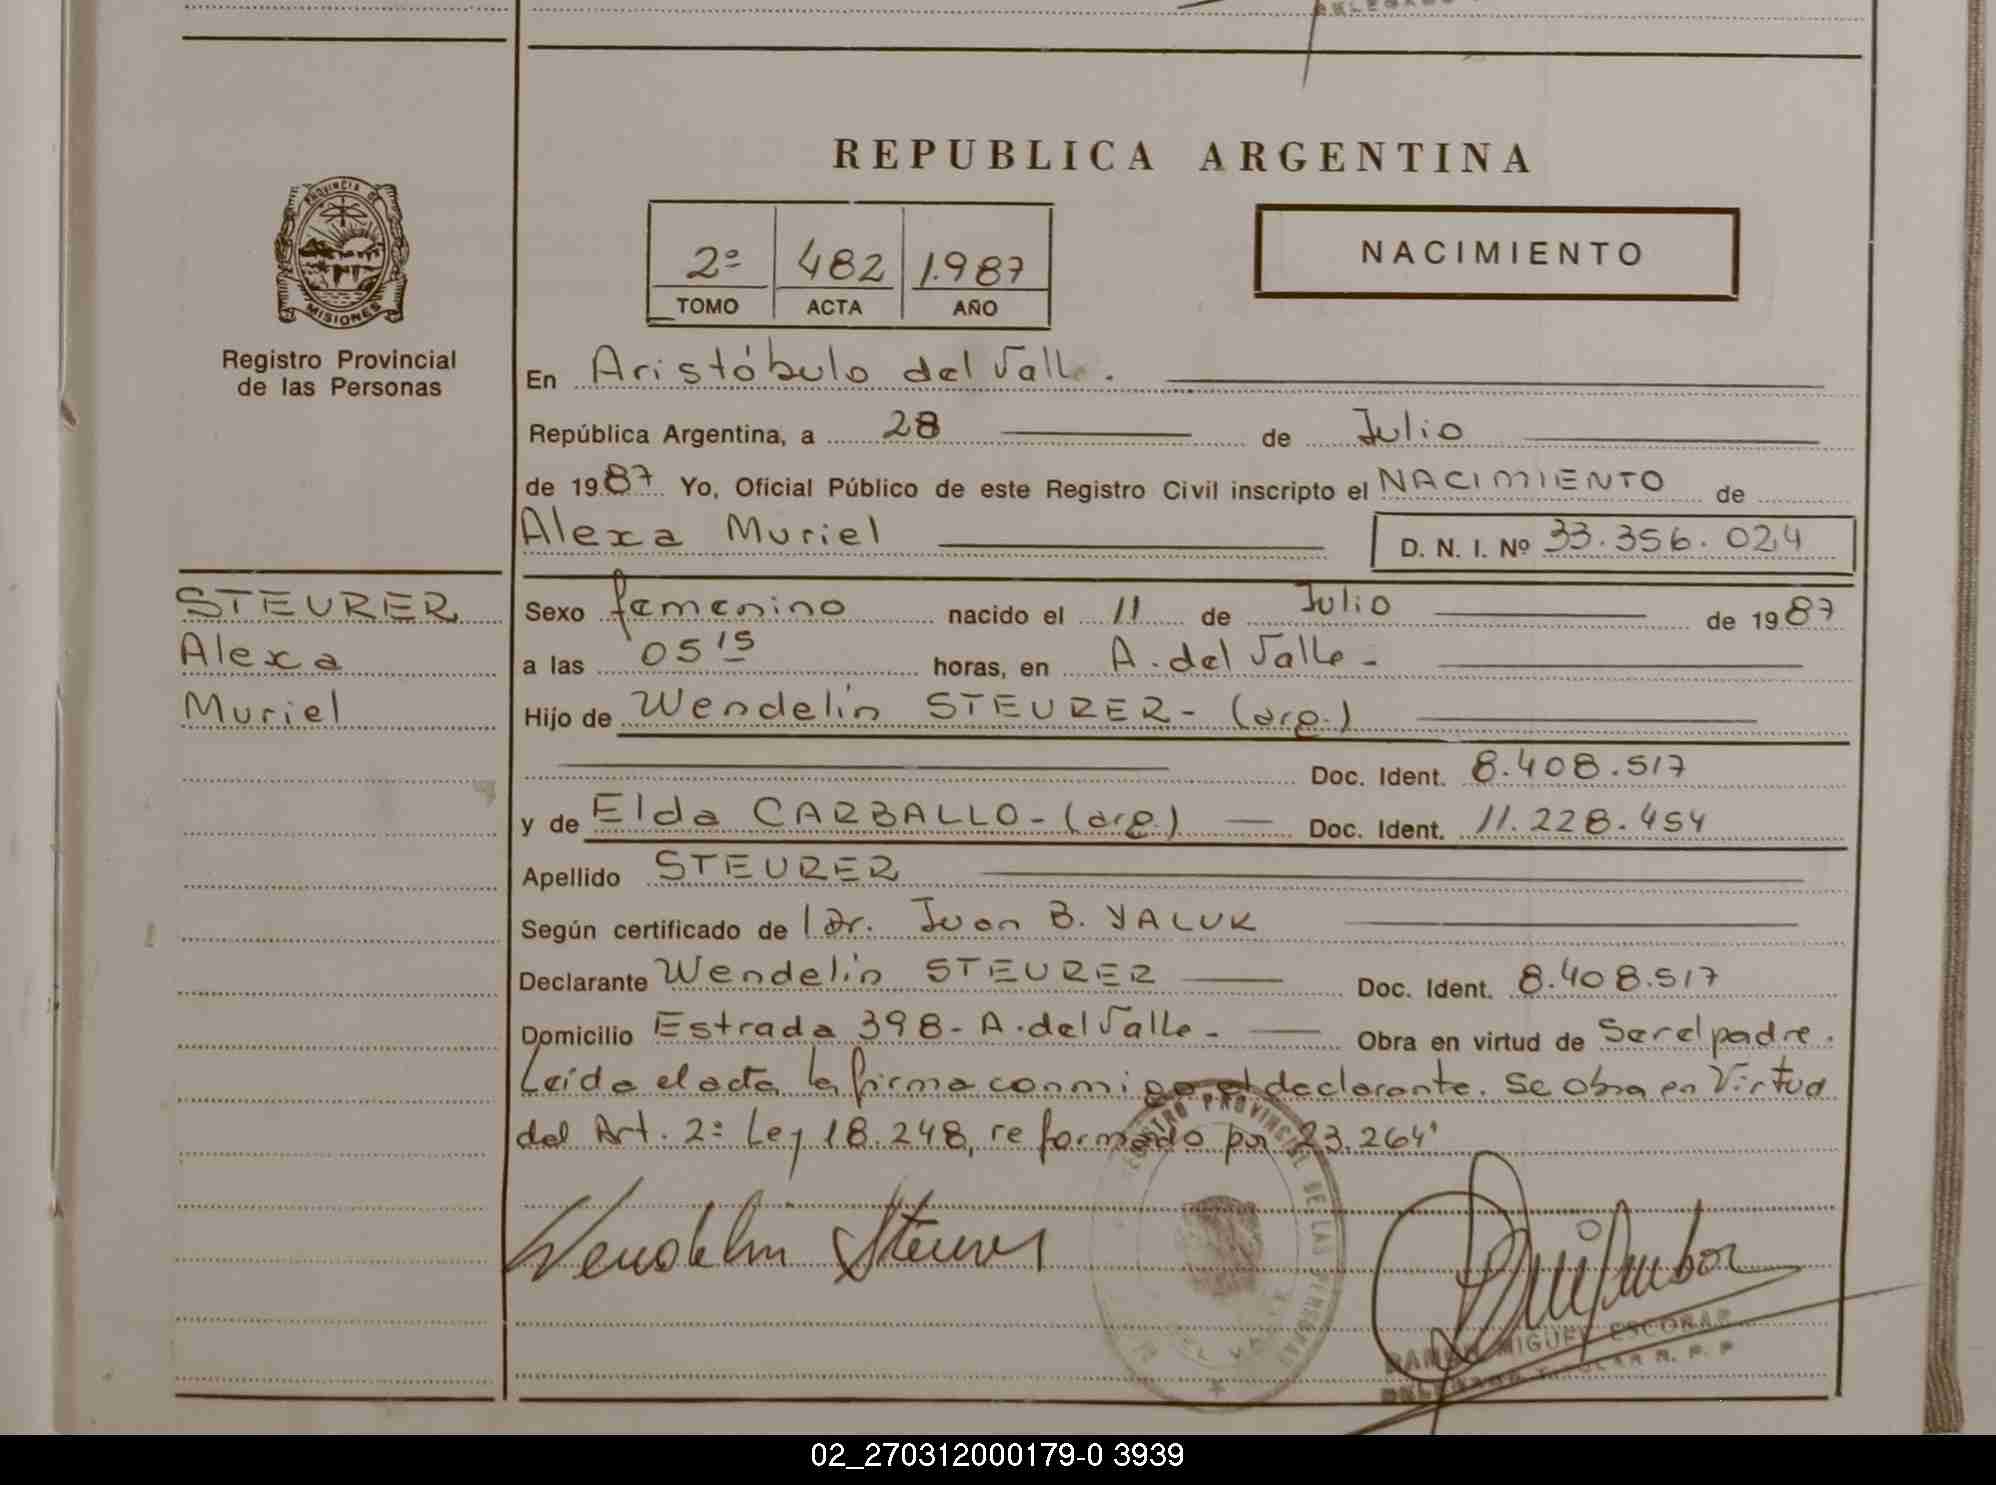 DELEGADO
REPUBLICA ARGENTINA
PROVINCIA DE
MISIONES
2º 482 1.987
TOMO ACTA AÑO
NACIMIENTO
Registro Provincial
de las Personas
En Aristóbulo del Valle.
República Argentina, a 28 de Julio
de 1987 Yo, Oficial Público de este Registro Civil inscripto el NACIMIENTO de
Alexa Muriel D. N. I. Nº 33.356.024
STEURER
Alexa
Muriel
Sexo femenino nacido el 11 de Julio de 1987
a las 05 15 horas, en A. del Valle -
Hijo de Wendelin STEURER - (arg.)
Doc. Ident. 8.408.517
y de Elda CARBALLO - (arg.) Doc. Ident. 11.228.454
Apellido STEURER
Según certificado de l Dr. Juan B. YALUK
Declarante Wendelin STEURER Doc. Ident. 8.408.517
Domicilio Estrada 398 - A. del Valle - Obra en virtud de Ser el padre.
Leída el acta, la firma conmigo el declarante. Se obra en Virtud
del Art. 2º Ley 18.248, reformado por 23.264'
Wendelin Steurer
REGISTRO PROVINCIAL DE LAS PERSONAS
DEL VALLE
RAMON MIGUEL ESCOBAR
DELEGADO TITULAR R. P. P
02_270312000179-0 3939